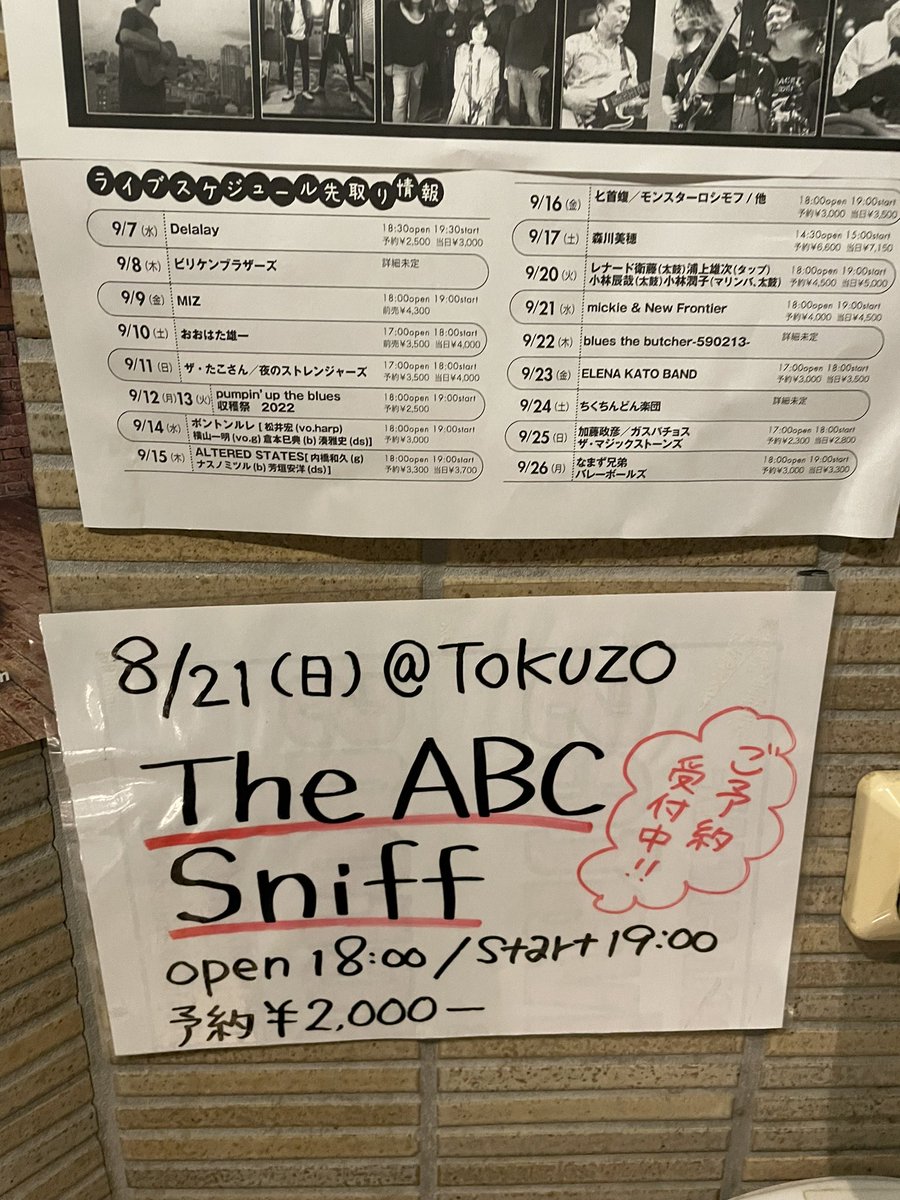 ライブスケジュール先取り情報
9/7(水) Delalay 18:30open 19:30start
予約¥2,500 当日¥3,000
9/8(木) ビリケンブラザーズ 詳細未定
9/9(金) MIZ 18:00open 19:00start
前売¥4,300
9/10(土) おおはた雄一 17:00open 18:00start
前売¥3,500 当日¥4,000
9/11(日) ザ・たこさん/夜のストレンジャーズ 17:00open 18:00start
予約¥3,500 当日¥4,000
9/12(月)13(火) pumpin' up the blues 18:00open 19:00start
収穫祭 2022 予約¥2,500
9/14(水) ポントンルレ[松井宏(vo.harp) 18:00open 19:00start
横山一明(vo.g)倉本巳典(b)湊雅史(ds)] 予約¥3,000
9/15(木) ALTERED STATES[内橋和久(g) 18:00open 19:00start
ナスノミツル(b)芳垣安洋(ds)] 予約¥3,300 当日¥3,700
9/16(金) 七首蝮/モンスターロシモフ/他 18:00open 19:00start
予約¥3,000 当日¥3,500
9/17(土) 森川美穂 14:30open 15:00start
予約¥6,600 当日¥7,150
9/20(火) レナード衛藤(太鼓)浦上雄次(タップ) 18:00open 19:00start
小林辰哉(太鼓)小林潤子(マリンバ、太鼓) 予約¥4,500 当日¥5,000
9/21(水) mickie & New Frontier 18:00open 19:00start
予約¥4,000 当日¥4,500
9/22(木) blues the butcher-590213- 詳細未定
9/23(金) ELENA KATO BAND 17:00open 18:00start
予約¥3,000 当日¥3,500
9/24(土) ちくちんどん楽団 詳細未定
9/25(日) 加藤政彦/ガスパチョス 17:00open 18:00start
ザ・マジックストーンズ 予約¥2,300 当日¥2,800
9/26(月) なまず兄弟 18:00open 19:00start
バレーボールズ 予約¥3,000 当日¥3,300
8/21(日)@TOKUZO
The ABC
Sniff
ご予約
受付中!!
open 18:00/start 19:00
予約¥2,000―